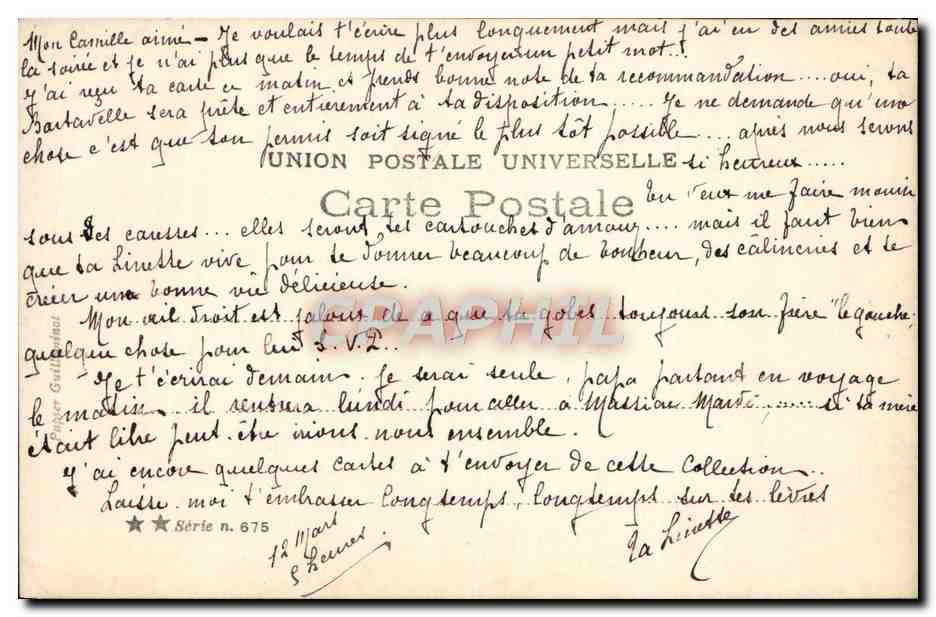 Mon Camille aimé - Je voulais t'écrire plus longuement mais j'ai eu des amies toute
la soirée et je n'ai plus que le temps de t'envoyer un petit mot!
J'ai reçu ta carte ce matin et prends bonne note de ta recommandation .... oui, ta
Bartavelle sera prête et entièrement à ta disposition ..... Je ne demande qu'une
chose c'est que son permis soit signé le plus tôt possible ... après nous serons
UNION POSTALE UNIVERSELLE si heureux .....
Carte Postale
Tu veux me faire mourir
sous tes caresses ... elles seront tes cartouches d'amour .... mais il faut bien
que ta Linette vive pour te donner beaucoup de bonheur, des câlineries et te
créer une bonne vie délicieuse.
CPAPHIL
Mon œil droit est jaloux de ce que tu gobes toujours son frère "le gauche,
quelque chose pour lui S.V.P..
Je t'écrirai demain. Je serai seule, papa partant en voyage
le matin. il rentrera lundi pour aller à Massiac Mardi, ...... si ta mère
était libre peut-être irions-nous ensemble.
J'ai encore quelques cartes à t'envoyer de cette collection..
Laisse-moi t'embrasser longtemps, longtemps sur tes lèvres
Papier Guilleminot
Série n. 675
12 Mars
5 heures.
Ta Linette